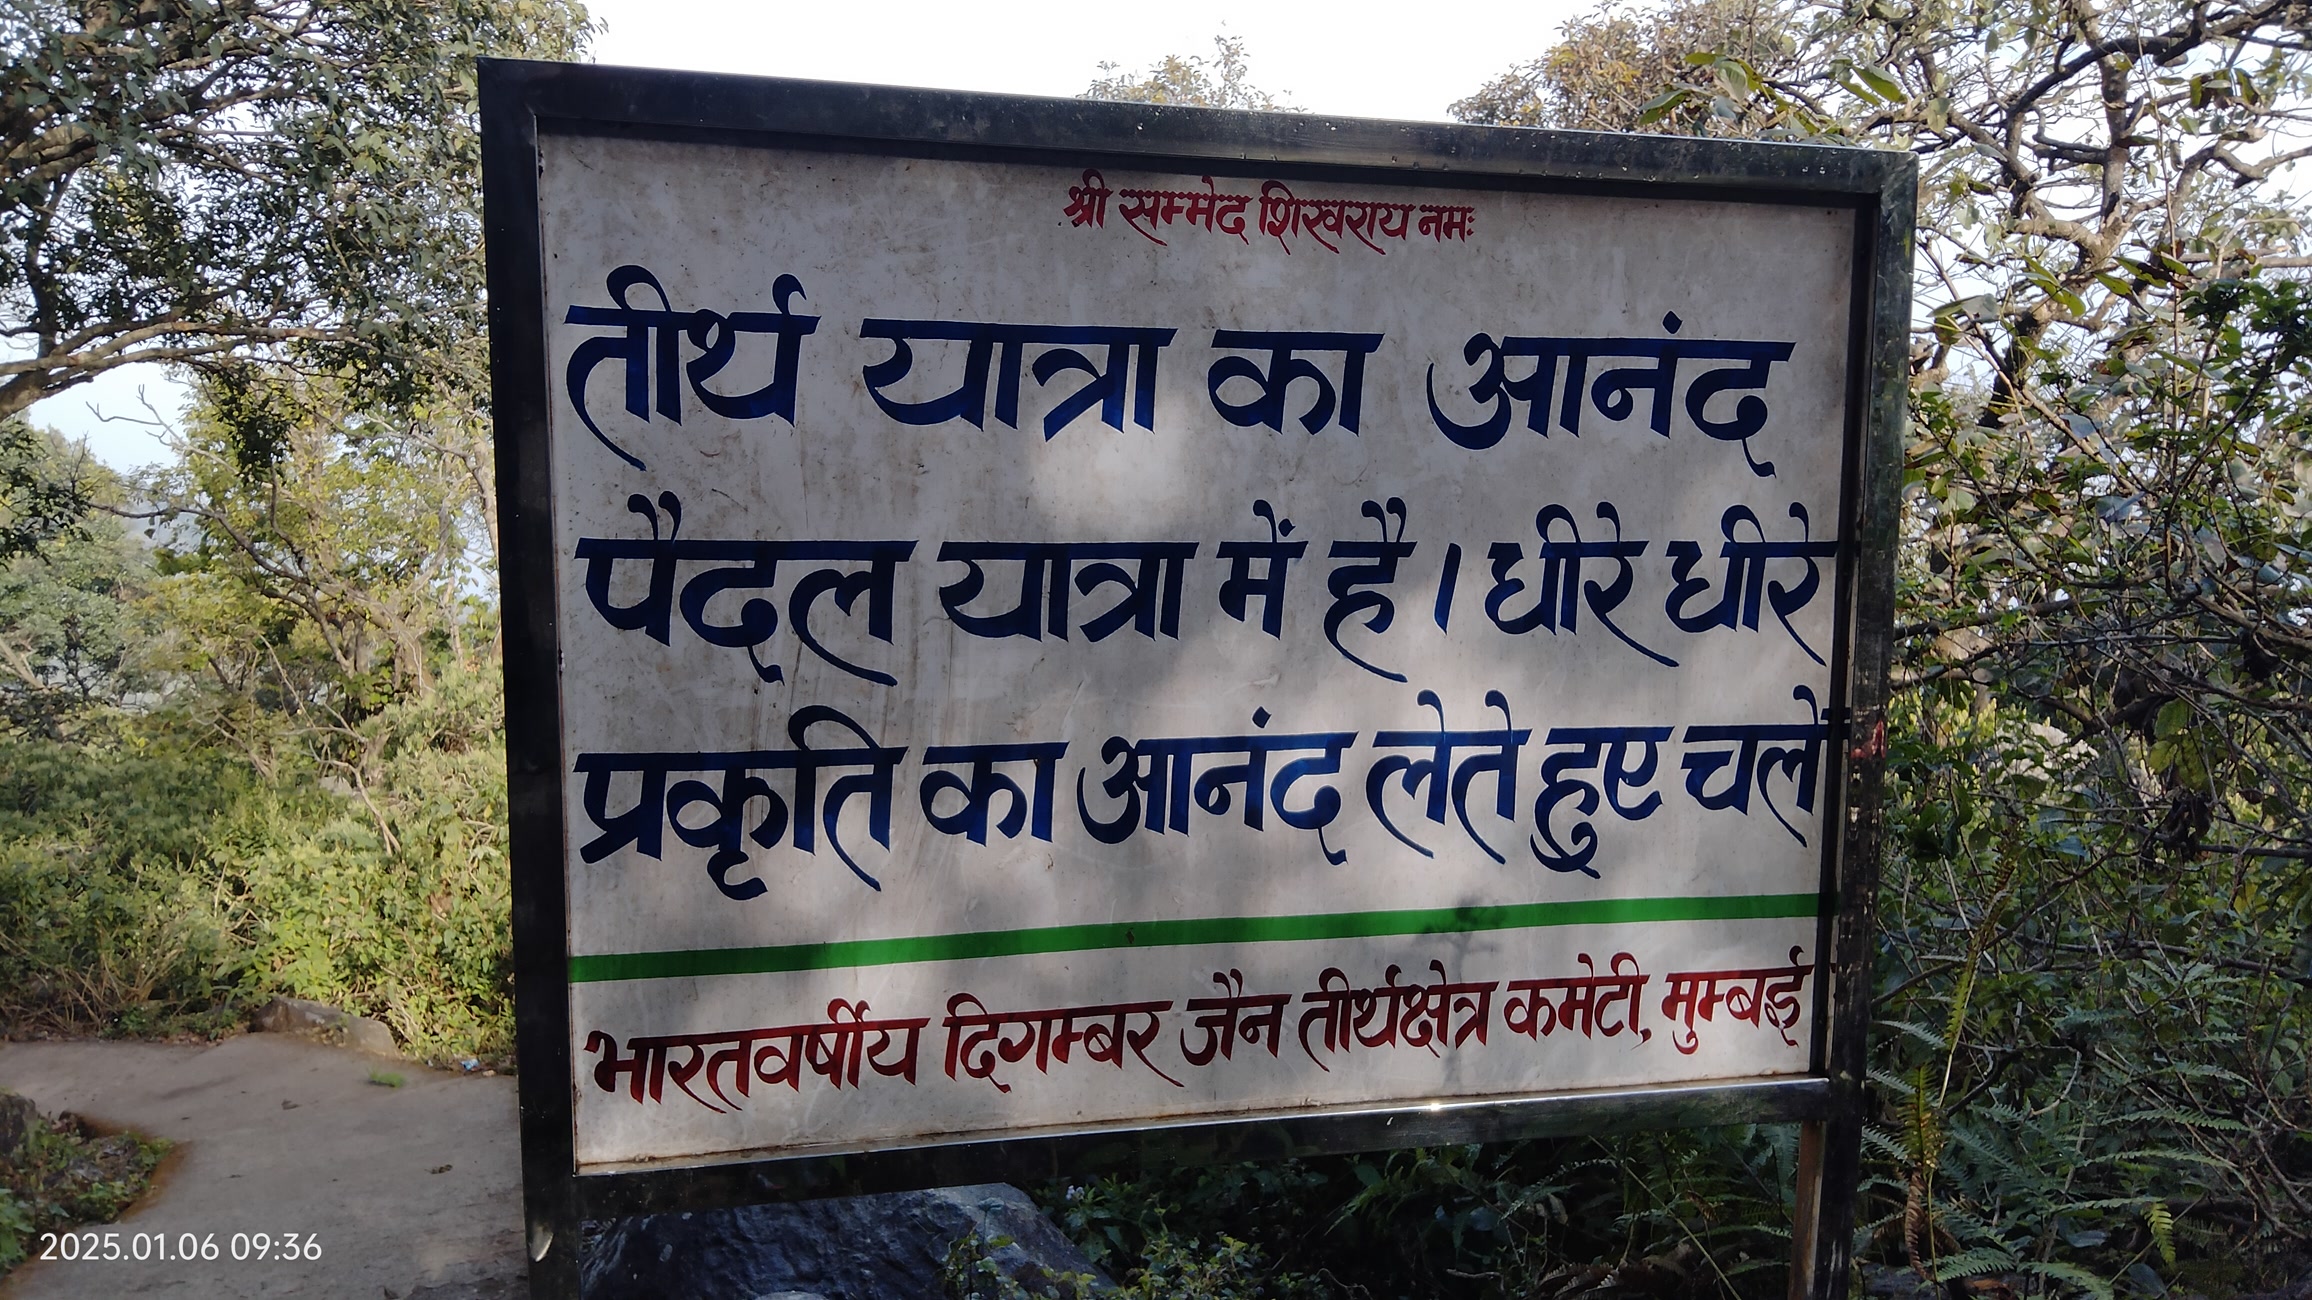 श्री सम्मेद शिखराय नमः
तीर्थ यात्रा का आनंद
पैदल यात्रा में है। धीरे धीरे
प्रकृति का आनंद लेते हुए चलें
भारतवर्षीय दिगम्बर जैन तीर्थक्षेत्र कमेटी, मुम्बई
2025.01.06 09:36